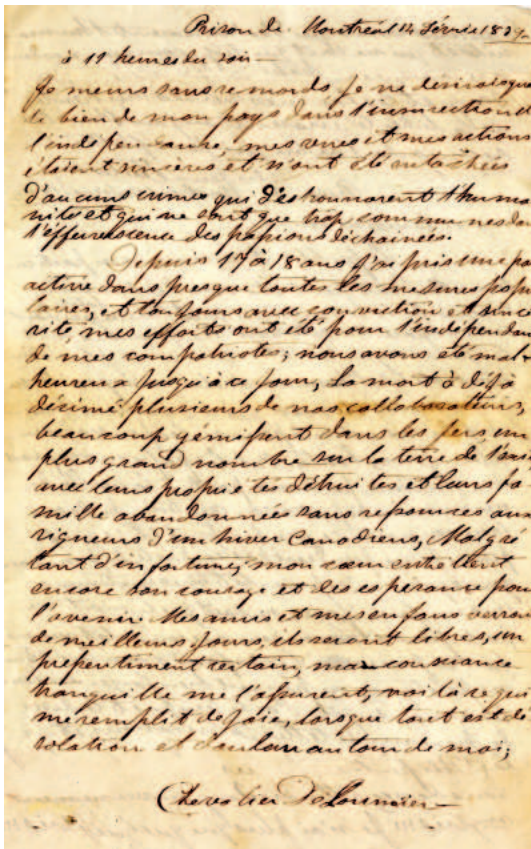 Prison de Montréal 14 Février 1839
à 11 heures du soir —
Je meurs sans remords je ne désirais que
le bien de mon pays dans l'insurection et
l'indépendance, mes vues et mes actions
étaient sincères et n'ont été entachées
d'aucuns crimes qui déshonnorent l'huma
nité et qui ne sont que trop communes dans
l'effervescence des passions déchainées.
Depuis 17 à 18 ans j'ai pris une pa
active dans presque toutes les mesures popu
laires, et toujours avec conviction et sincé
rité, mes efforts ont été pour l'indépendan
de mes compatriotes; nous avons été mal-
heureux jusqu'à ce jour, La mort à déjà
décimé plusieurs de nos collaborateurs,
beaucoup gémissent dans les fers, un
plus grand nombre sur la terre de l'exil
avec leurs propriétés détruites et leurs fa
mille abandonnées sans ressources aux
rigueurs d'un hiver Canadiens, Malgré
tant d'infortune, mon cœur entretient
encore son courage et des espérance pour
l'avenir Mes amis et mes enfans verron
de meilleurs jours, ils seront libres, un
pressentiment certain, ma consciance
tranquille me l'assurent, voilà ce qui
me remplit de joie, lorsque tout est dé
solation et douleur autour de moi;
Chevalier DeLorimier —